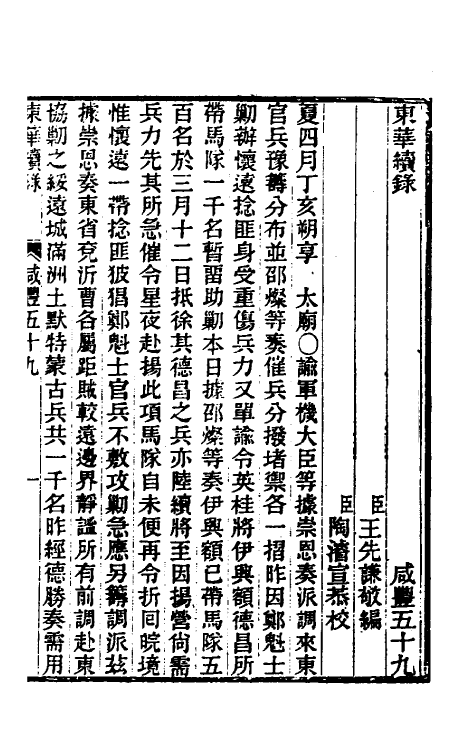 東華續錄　咸豐五十九
臣王先謙敬編
臣陶濬宣恭校
夏四月丁亥朔享　太廟○諭軍機大臣等據崇恩奏派調來東
官兵豫籌分布並邵燦等奏催兵分撥堵禦各一摺昨因鄭魁士
勦辦懷遠捻匪身受重傷兵力又單諭令英桂將伊興額德昌所
帶馬隊一千名暫留助勦本日據邵燦等奏伊興額已帶馬隊五
百名於三月十二日抵徐其德昌之兵亦陸續將至因揚營尙需
兵力先其所急催令星夜赴揚此項馬隊自未便再令折回皖境
惟懷遠一帶捻匪狓猖鄭魁士官兵不敷攻勦急應另籌調派茲
據崇恩奏東省兗沂曹各屬距賊較遠邊界靜謐所有前調赴東
協勦之綏遠城滿洲土默特蒙古兵共一千名昨經德勝奏需用
東華續錄　咸豐五十九　一